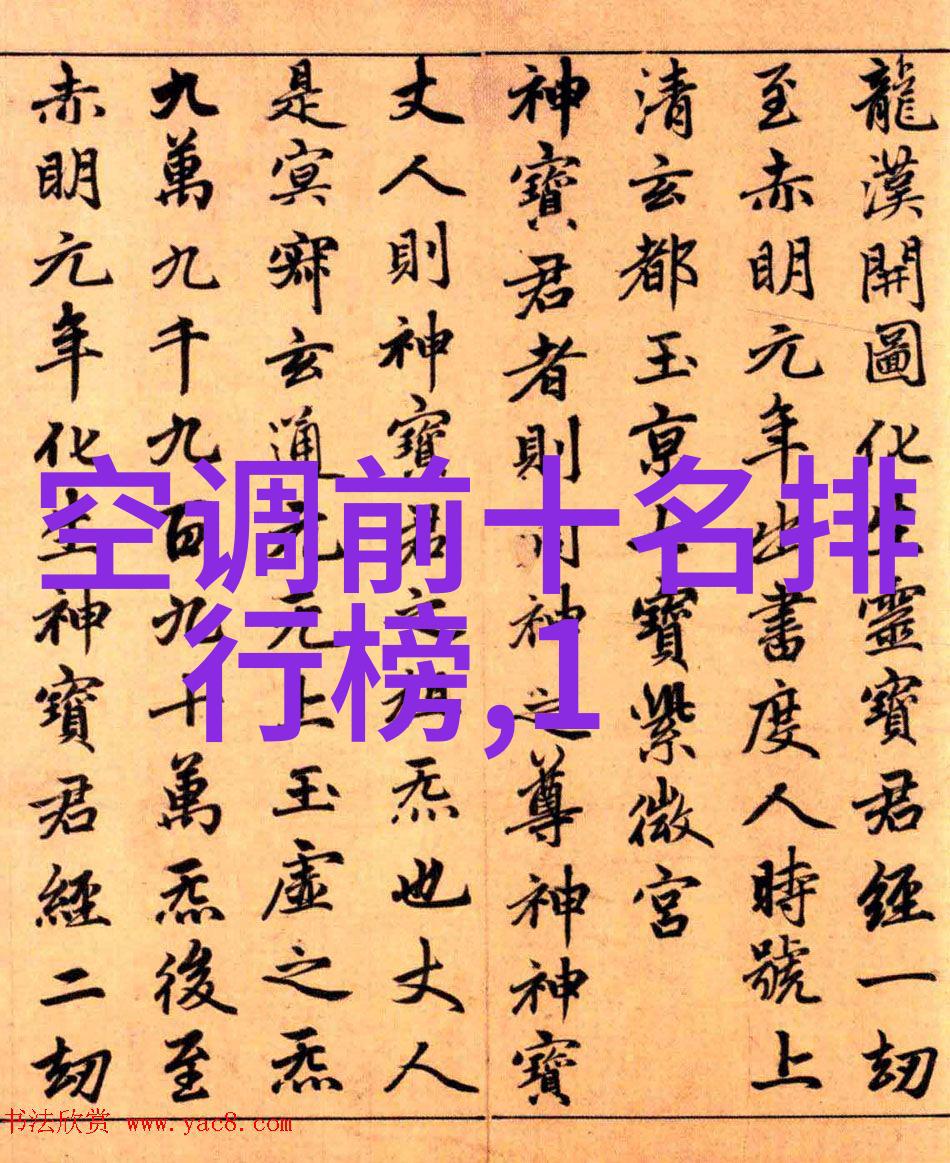 龍漢開圖化生靈寶君經一劫
至赤明元年出書度人時號上
清玄都玉京七寶紫微宮
神寶君者則洞神之尊神神寶
丈人則神寶君之祖炁也丈人
是冥寂玄通元无上玉虛之炁
九萬九千九百九十萬炁後至
赤明元年化生神寶君經二劫
空调前十名排
行榜,1
书法欣赏 www.yac8.com